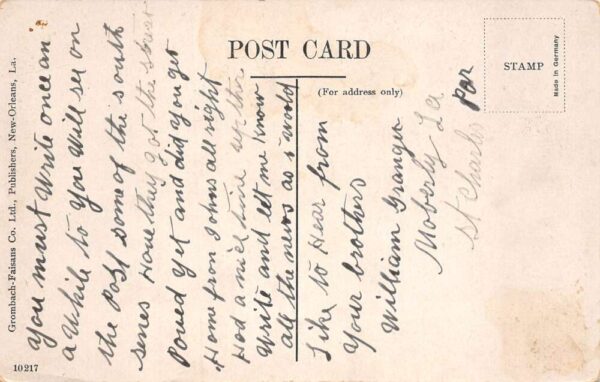 POST CARD
(For address only)
STAMP
Made in Germany
Grombach-Faisans Co. Ltd., Publishers, New-Orleans, La.
10217
You must write once an
a While to you Will see on
the post some of the south
senes Have they got the street
Poued yet and did you get
Home from Johns all right
Had a nice time up there
Write and let me Know
all the news as i would
Like to Hear from
Your brothers
William Granger
Moberly La
St Charles Par